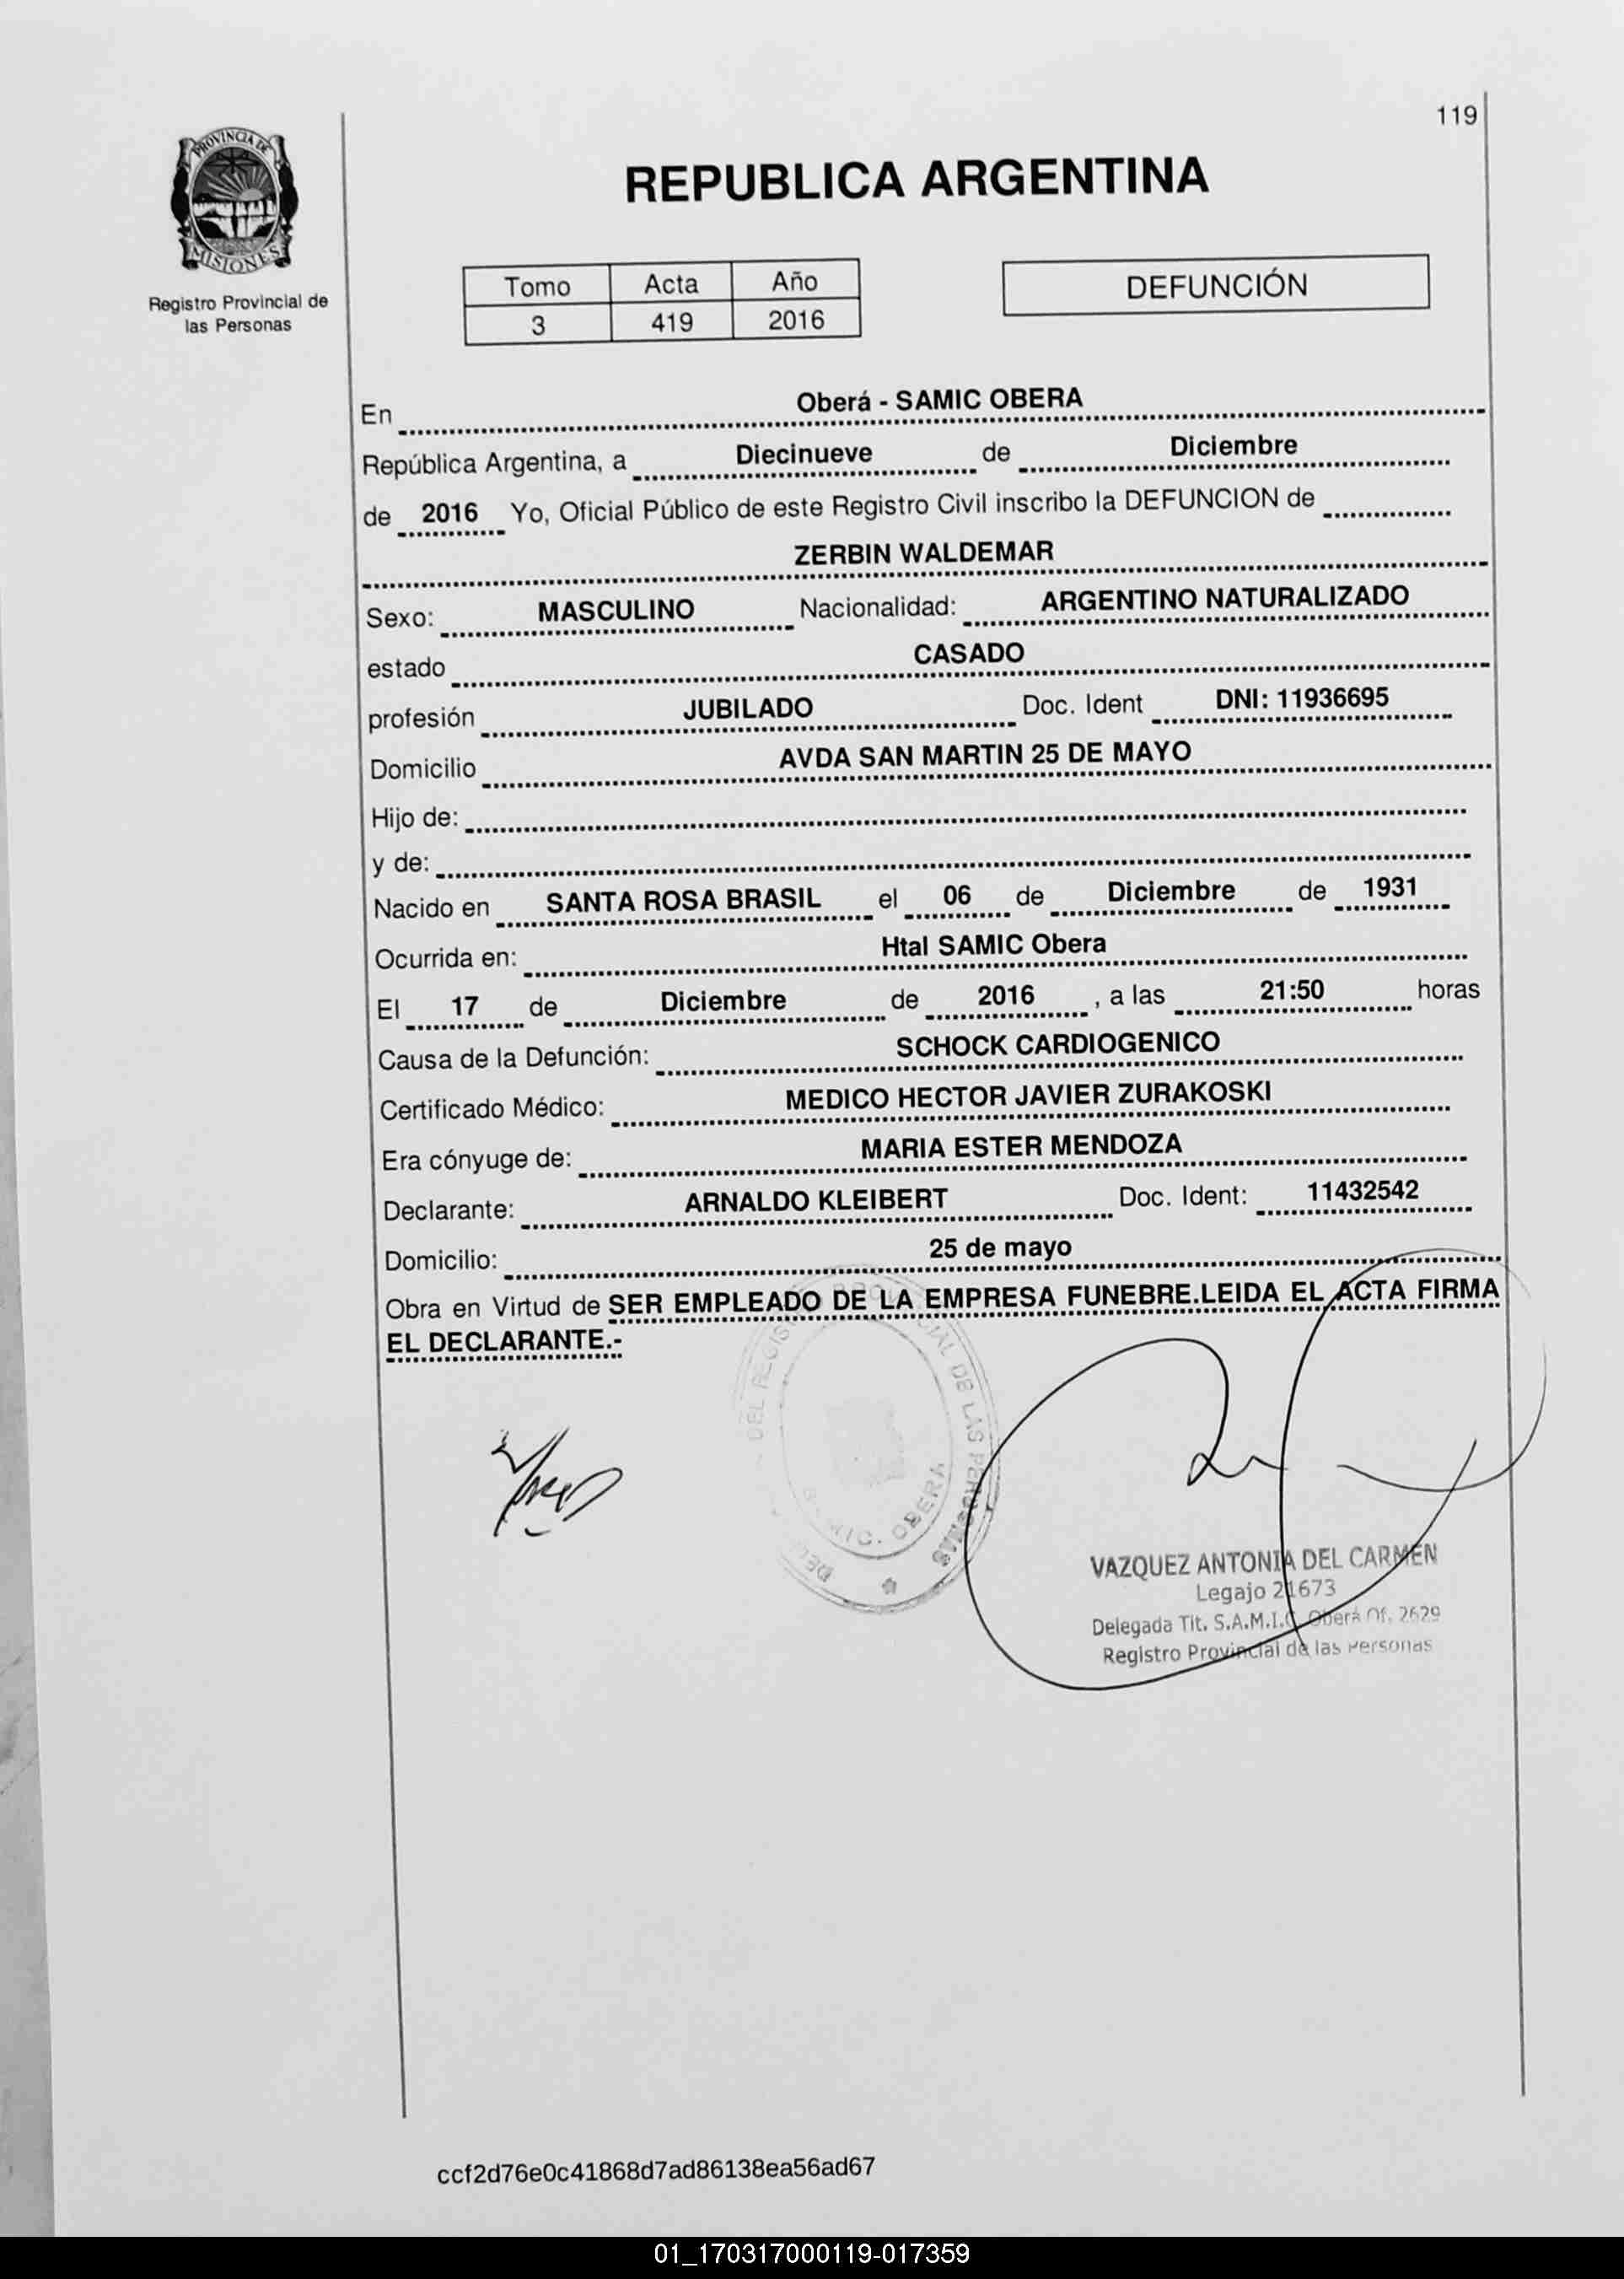 119
PROVINCIA DE
MISIONES
Registro Provincial de
las Personas
REPUBLICA ARGENTINA
Tomo Acta Año
3 419 2016
DEFUNCIÓN
En Oberá - SAMIC OBERA
República Argentina, a Diecinueve de Diciembre
de 2016 Yo, Oficial Público de este Registro Civil inscribo la DEFUNCION de
ZERBIN WALDEMAR
Sexo: MASCULINO Nacionalidad: ARGENTINO NATURALIZADO
estado CASADO
profesión JUBILADO Doc. Ident DNI: 11936695
Domicilio AVDA SAN MARTIN 25 DE MAYO
Hijo de:
y de:
Nacido en SANTA ROSA BRASIL el 06 de Diciembre de 1931
Ocurrida en: Htal SAMIC Obera
El 17 de Diciembre de 2016 , a las 21:50 horas
Causa de la Defunción: SCHOCK CARDIOGENICO
Certificado Médico: MEDICO HECTOR JAVIER ZURAKOSKI
Era cónyuge de: MARIA ESTER MENDOZA
Declarante: ARNALDO KLEIBERT Doc. Ident: 11432542
Domicilio: 25 de mayo
Obra en Virtud de SER EMPLEADO DE LA EMPRESA FUNEBRE.LEIDA EL ACTA FIRMA
EL DECLARANTE.-
DEL REGISTRO PROVINCIAL DE LAS PERSONAS
OBERA
VAZQUEZ ANTONIA DEL CARMEN
Legajo 21673
Delegada Tit. S.A.M.I.C. Oberá Of. 2629
Registro Provincial de las Personas
ccf2d76e0c41868d7ad86138ea56ad67
01_170317000119-017359